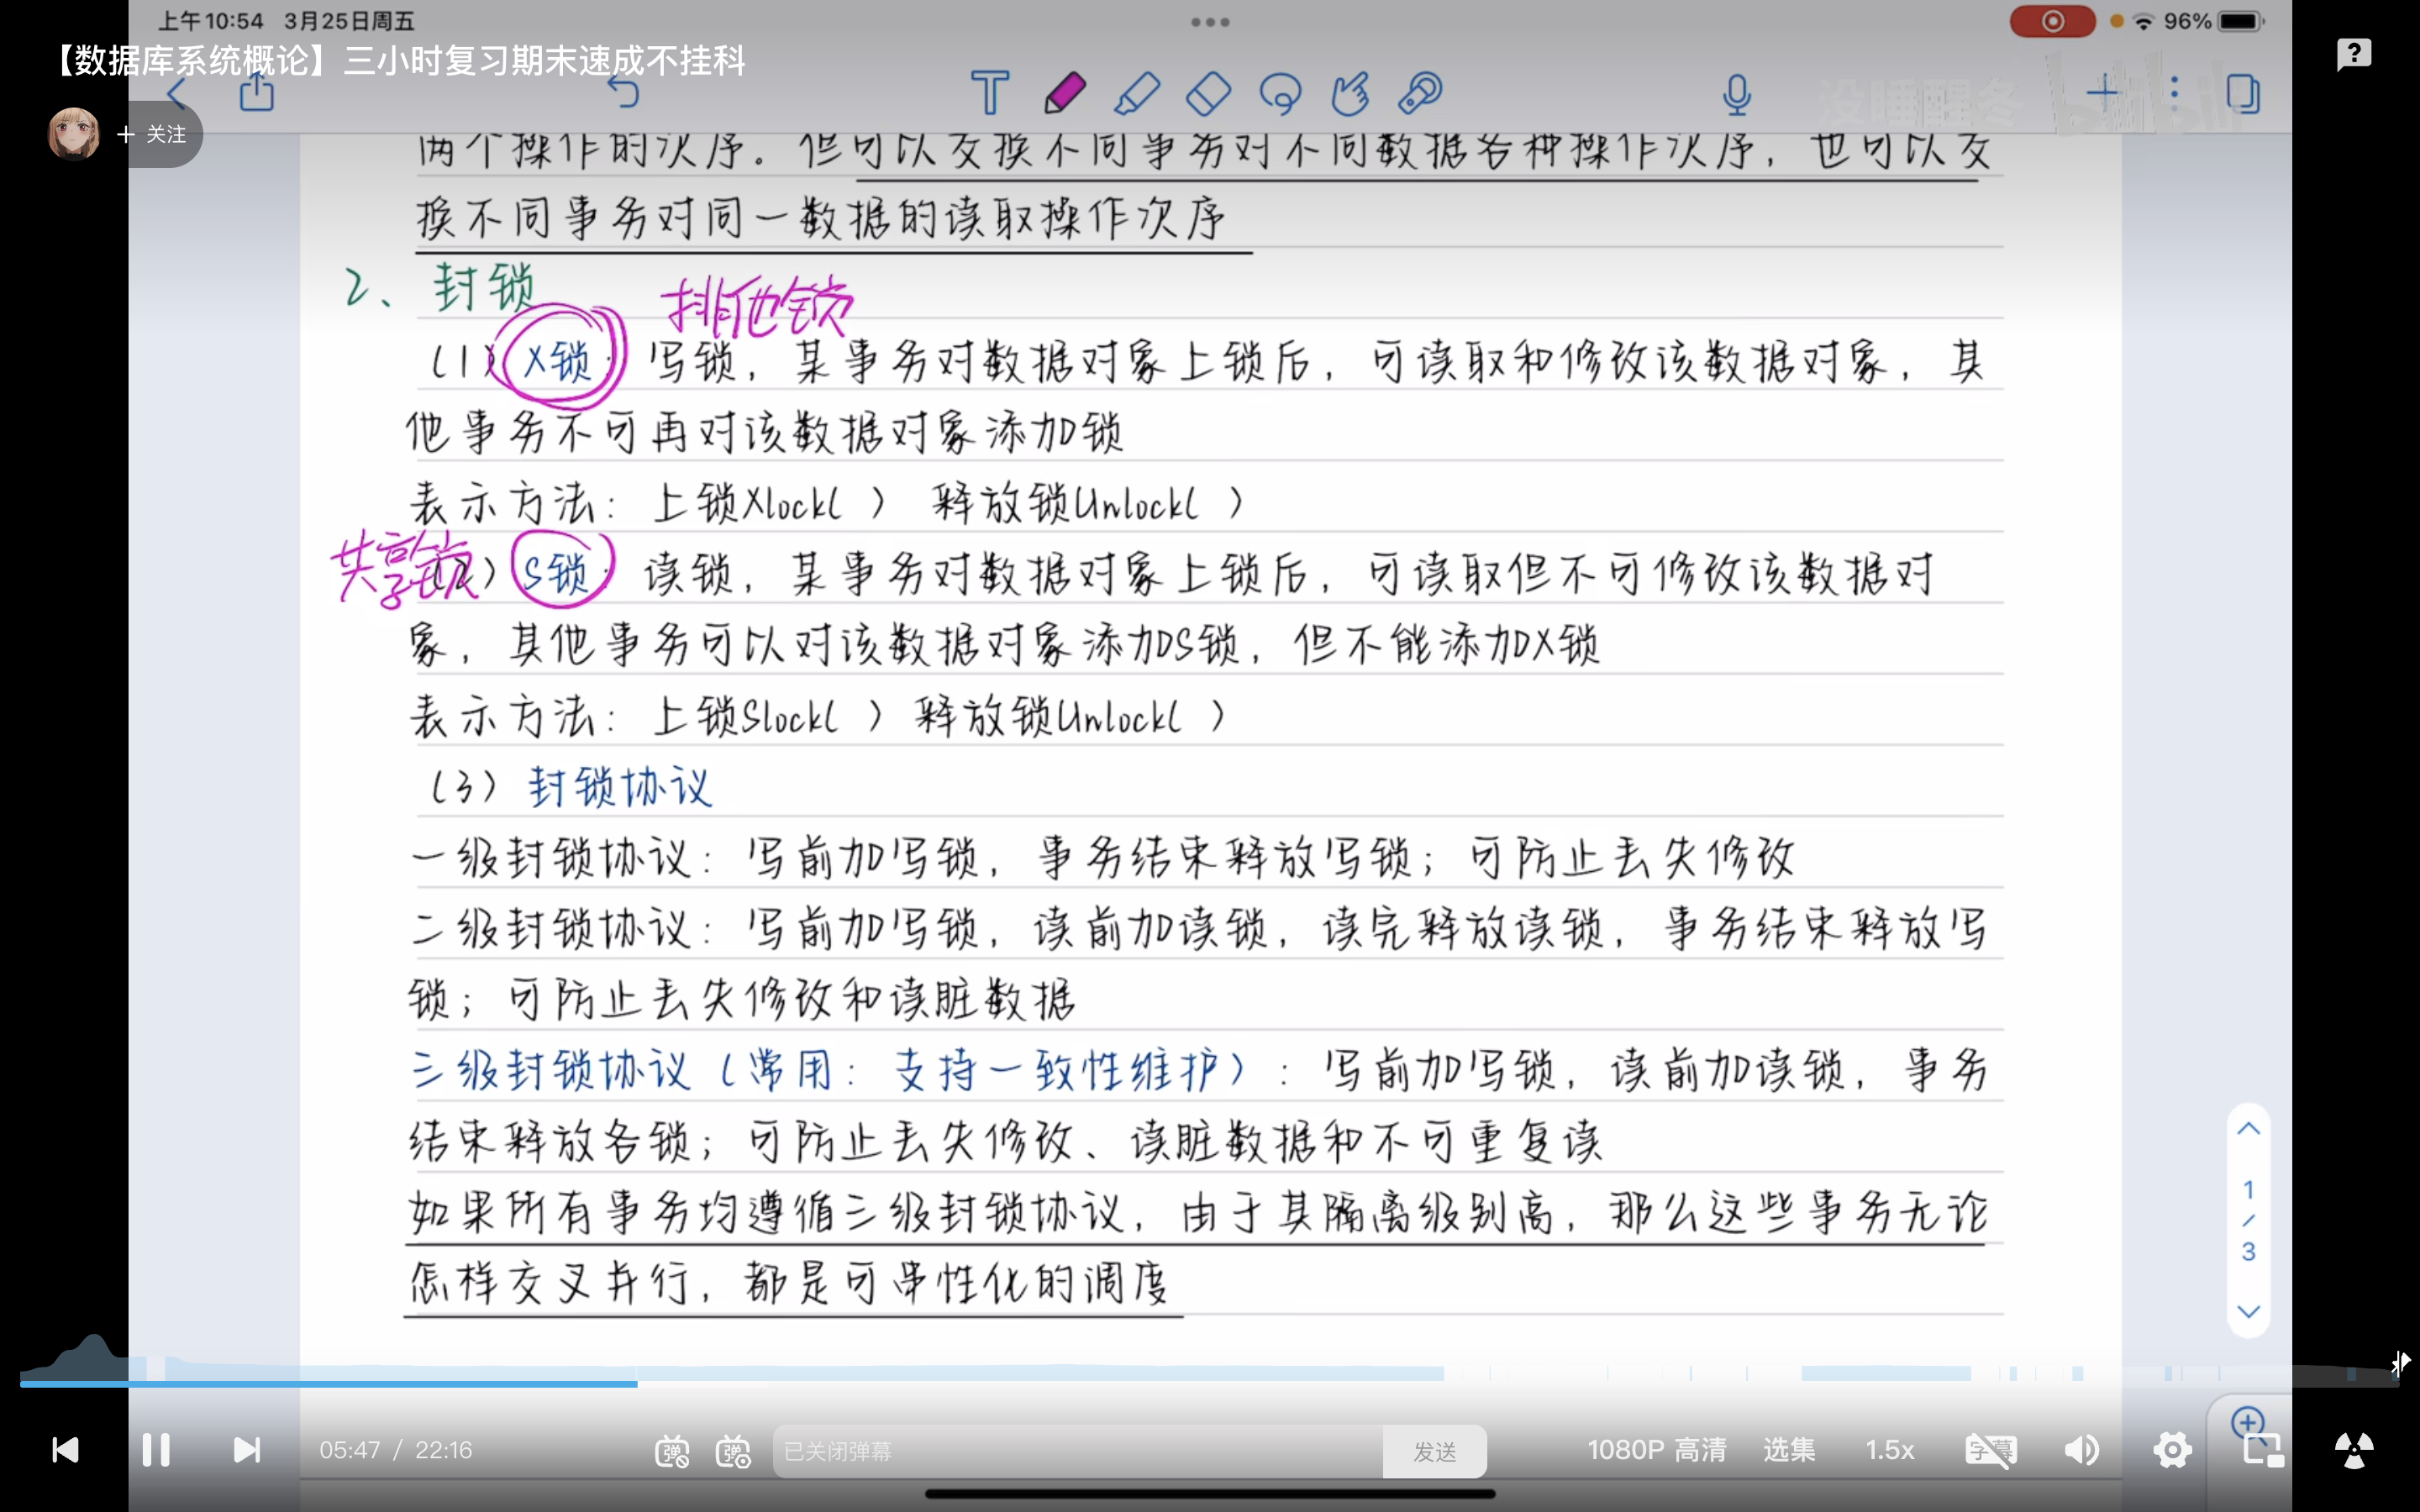 上午10:54 3月25日周五
96%
【数据库系统概论】三小时复习期末速成不挂科
+ 关注
没睡醒冬 bilibili
两个操作的次序。但可以交换不同事务对不同数据各种操作次序，也可以交
换不同事务对同一数据的读取操作次序
2、封锁
排他锁
(1) X锁：写锁，某事务对数据对象上锁后，可读取和修改该数据对象，其
他事务不可再对该数据对象添加锁
表示方法：上锁Xlock( ) 释放锁Unlock( )
共享锁
(2) S锁：读锁，某事务对数据对象上锁后，可读取但不可修改该数据对
象，其他事务可以对该数据对象添加S锁，但不能添加X锁
表示方法：上锁Slock( ) 释放锁Unlock( )
(3) 封锁协议
一级封锁协议：写前加写锁，事务结束释放写锁；可防止丢失修改
二级封锁协议：写前加写锁，读前加读锁，读完释放读锁，事务结束释放写
锁；可防止丢失修改和读脏数据
三级封锁协议（常用：支持一致性维护）：写前加写锁，读前加读锁，事务
结束释放各锁；可防止丢失修改、读脏数据和不可重复读
如果所有事务均遵循三级封锁协议，由于其隔离级别高，那么这些事务无论
怎样交叉并行，都是可串性化的调度
1
/
3
05:47 / 22:16
弹
弹
已关闭弹幕
发送
1080P 高清
选集
1.5x
字幕